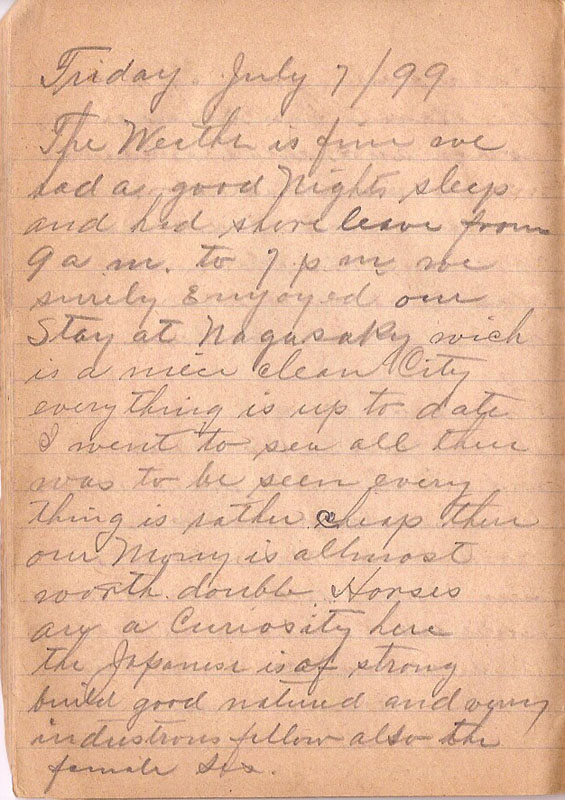 Friday July 7/99
The Weather is fine we
had a good Nights sleep
and had shore leave from
9 a m. to 7 p m we
surely Enyoyed our
Stay at Nagasaky wich
is a nice clean City
everything is up to date
I went to see all there
was to be seen every
thing is rather cheap there
our Mony is allmost
worth double Horses
are a Curiosity here
the Japanese is of strong
build good natured and verry
industrous fellow also the
female sex.